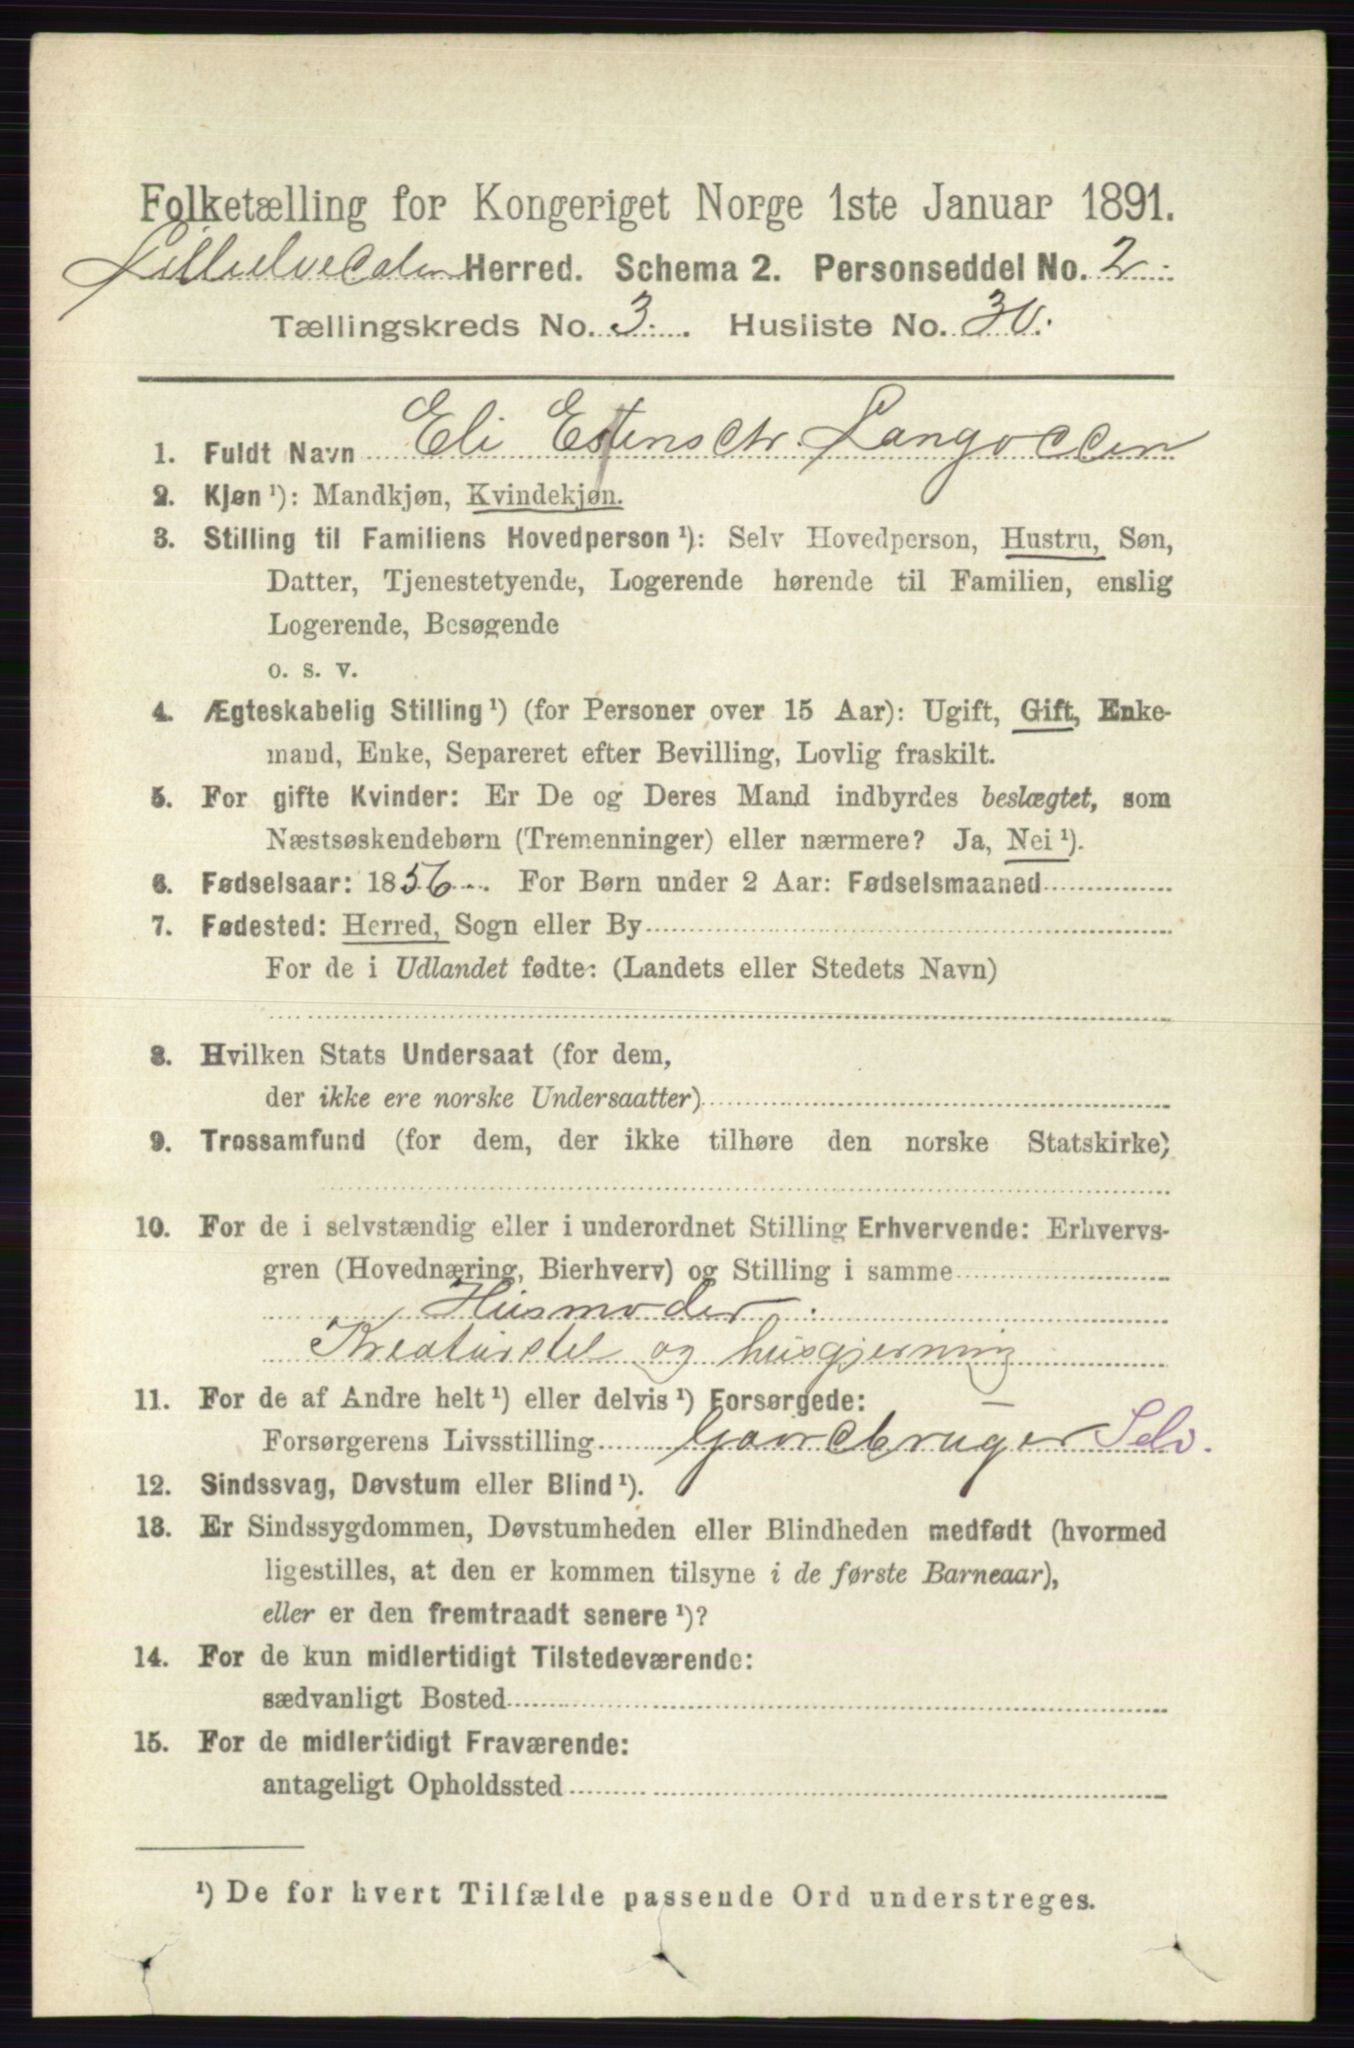 Folketælling for Kongeriget Norge 1ste Januar 1891.
Lilleelvedalen Herred. Schema 2. Personseddel No. 2.
Tællingskreds No. 3. Husliste No. 30.
1. Fuldt Navn Eli Estensdtr. Langodden
2. Kjøn ¹): Mandkjøn, Kvindekjøn.
3. Stilling til Familiens Hovedperson ¹): Selv Hovedperson, Hustru, Søn,
Datter, Tjenestetyende, Logerende hørende til Familien, enslig
Logerende, Besøgende
o. s. v.
4. Ægteskabelig Stilling ¹) (for Personer over 15 Aar): Ugift, Gift, Enke-
mand, Enke, Separeret efter Bevilling, Lovlig fraskilt.
5. For gifte Kvinder: Er De og Deres Mand indbyrdes beslægtet, som
Næstsøskendebørn (Tremenninger) eller nærmere? Ja, Nei ¹).
6. Fødselsaar: 1856. For Børn under 2 Aar: Fødselsmaaned
7. Fødested: Herred, Sogn eller By
For de i Udlandet fødte: (Landets eller Stedets Navn)
8. Hvilken Stats Undersaat (for dem,
der ikke ere norske Undersaatter)
9. Trossamfund (for dem, der ikke tilhøre den norske Statskirke)
10. For de i selvstændig eller i underordnet Stilling Erhvervende: Erhvervs-
gren (Hovednæring, Bierhverv) og Stilling i samme
Husmoder.
Kreaturstel og husgjerning
11. For de af Andre helt ¹) eller delvis ¹) Forsørgede:
Forsørgerens Livsstilling Gaardbruger Selv.
12. Sindssvag, Døvstum eller Blind ¹).
13. Er Sindssygdommen, Døvstumheden eller Blindheden medfødt (hvormed
ligestilles, at den er kommen tilsyne i de første Barneaar),
eller er den fremtraadt senere ¹)?
14. For de kun midlertidigt Tilstedeværende:
sædvanligt Bosted
15. For de midlertidigt Fraværende:
antageligt Opholdssted
¹) De for hvert Tilfælde passende Ord understreges.